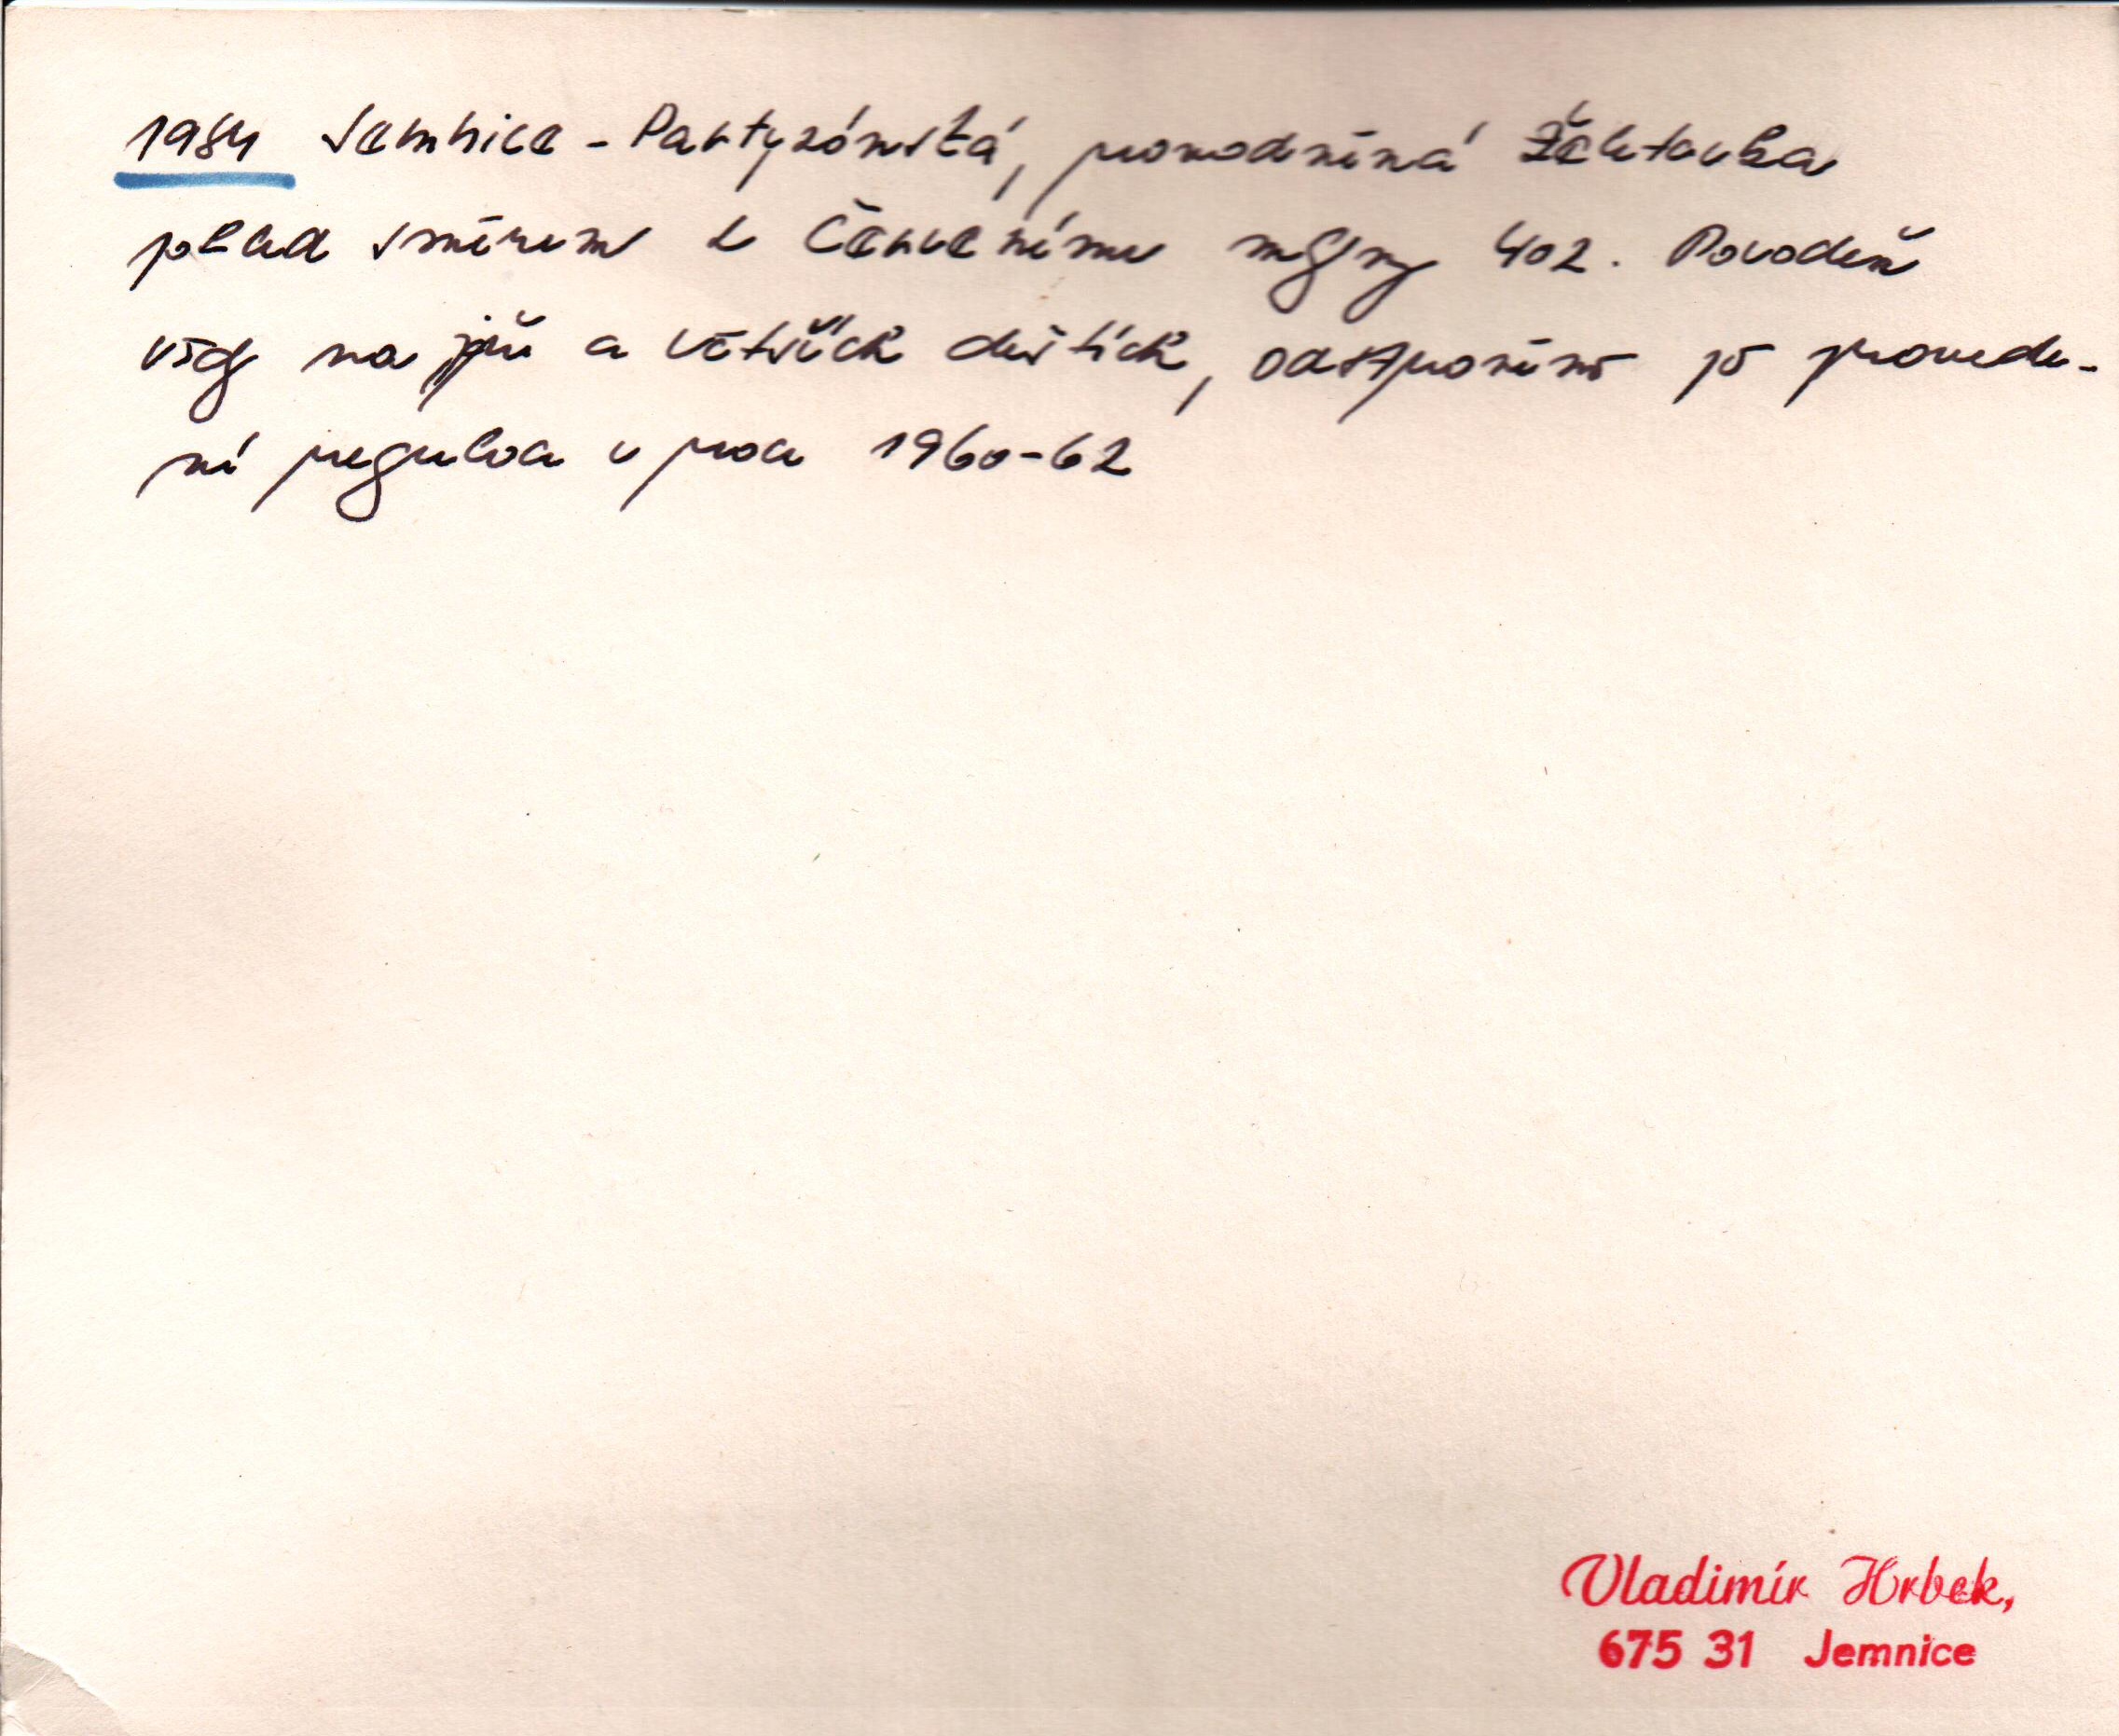 1984 Jemnice - Partyzánská, rozvodněná Želetavka
pohled směrem k Červenému mlýnu 402. Povodeň
vždy na jaře a větších deštích, odstraněno po provede-
ní regulaci v roce 1960-62
Vladimír Hrbek,
675 31 Jemnice